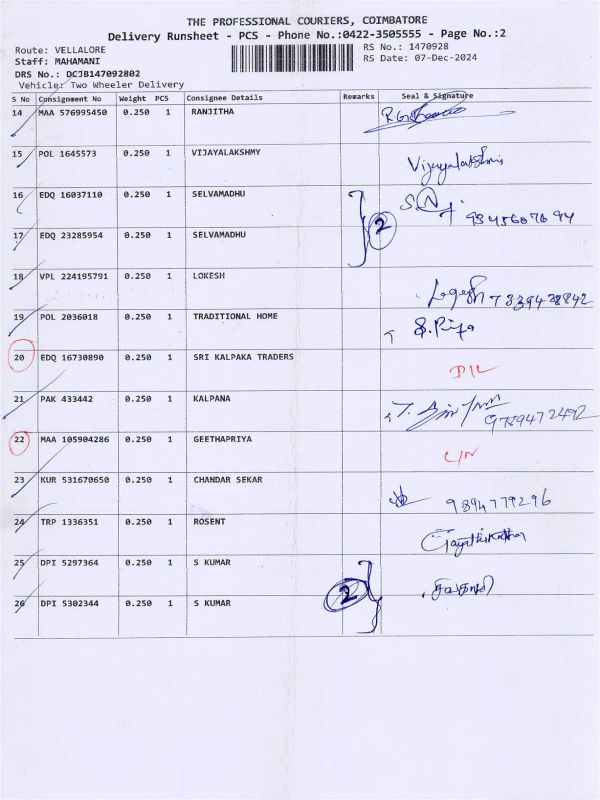 THE PROFESSIONAL COURIERS, COIMBATORE
Delivery Runsheet - PCS - Phone No.:0422-3505555 - Page No.:2
Route: VELLALORE
RS No.: 1470928
Staff: MAHAMANI
RS Date: 07-Dec-2024
DRS No.: DCJB147092802
Vehicle: Two Wheeler Delivery
S No Consignment No Weight PCS Consignee Details Remarks Seal & Signature
14 MAA 576995450 0.250 1 RANJITHA
15 POL 1645573 0.250 1 VIJAYALAKSHMY Vijayalakshmi
16 EDQ 16037110 0.250 1 SELVAMADHU 2 S.N
17 EDQ 23285954 0.250 1 SELVAMADHU
18 VPL 224195791 0.250 1 LOKESH
19 POL 2036018 0.250 1 TRADITIONAL HOME S.Priya
20 EDQ 16730890 0.250 1 SRI KALPAKA TRADERS D/L
21 PAK 433442 0.250 1 KALPANA 9789472492
22 MAA 105904286 0.250 1 GEETHAPRIYA C/N
23 KUR 531670650 0.250 1 CHANDAR SEKAR 9894779296
24 TRP 1336351 0.250 1 ROSENT
25 DPI 5297364 0.250 1 S KUMAR 2
26 DPI 5302344 0.250 1 S KUMAR